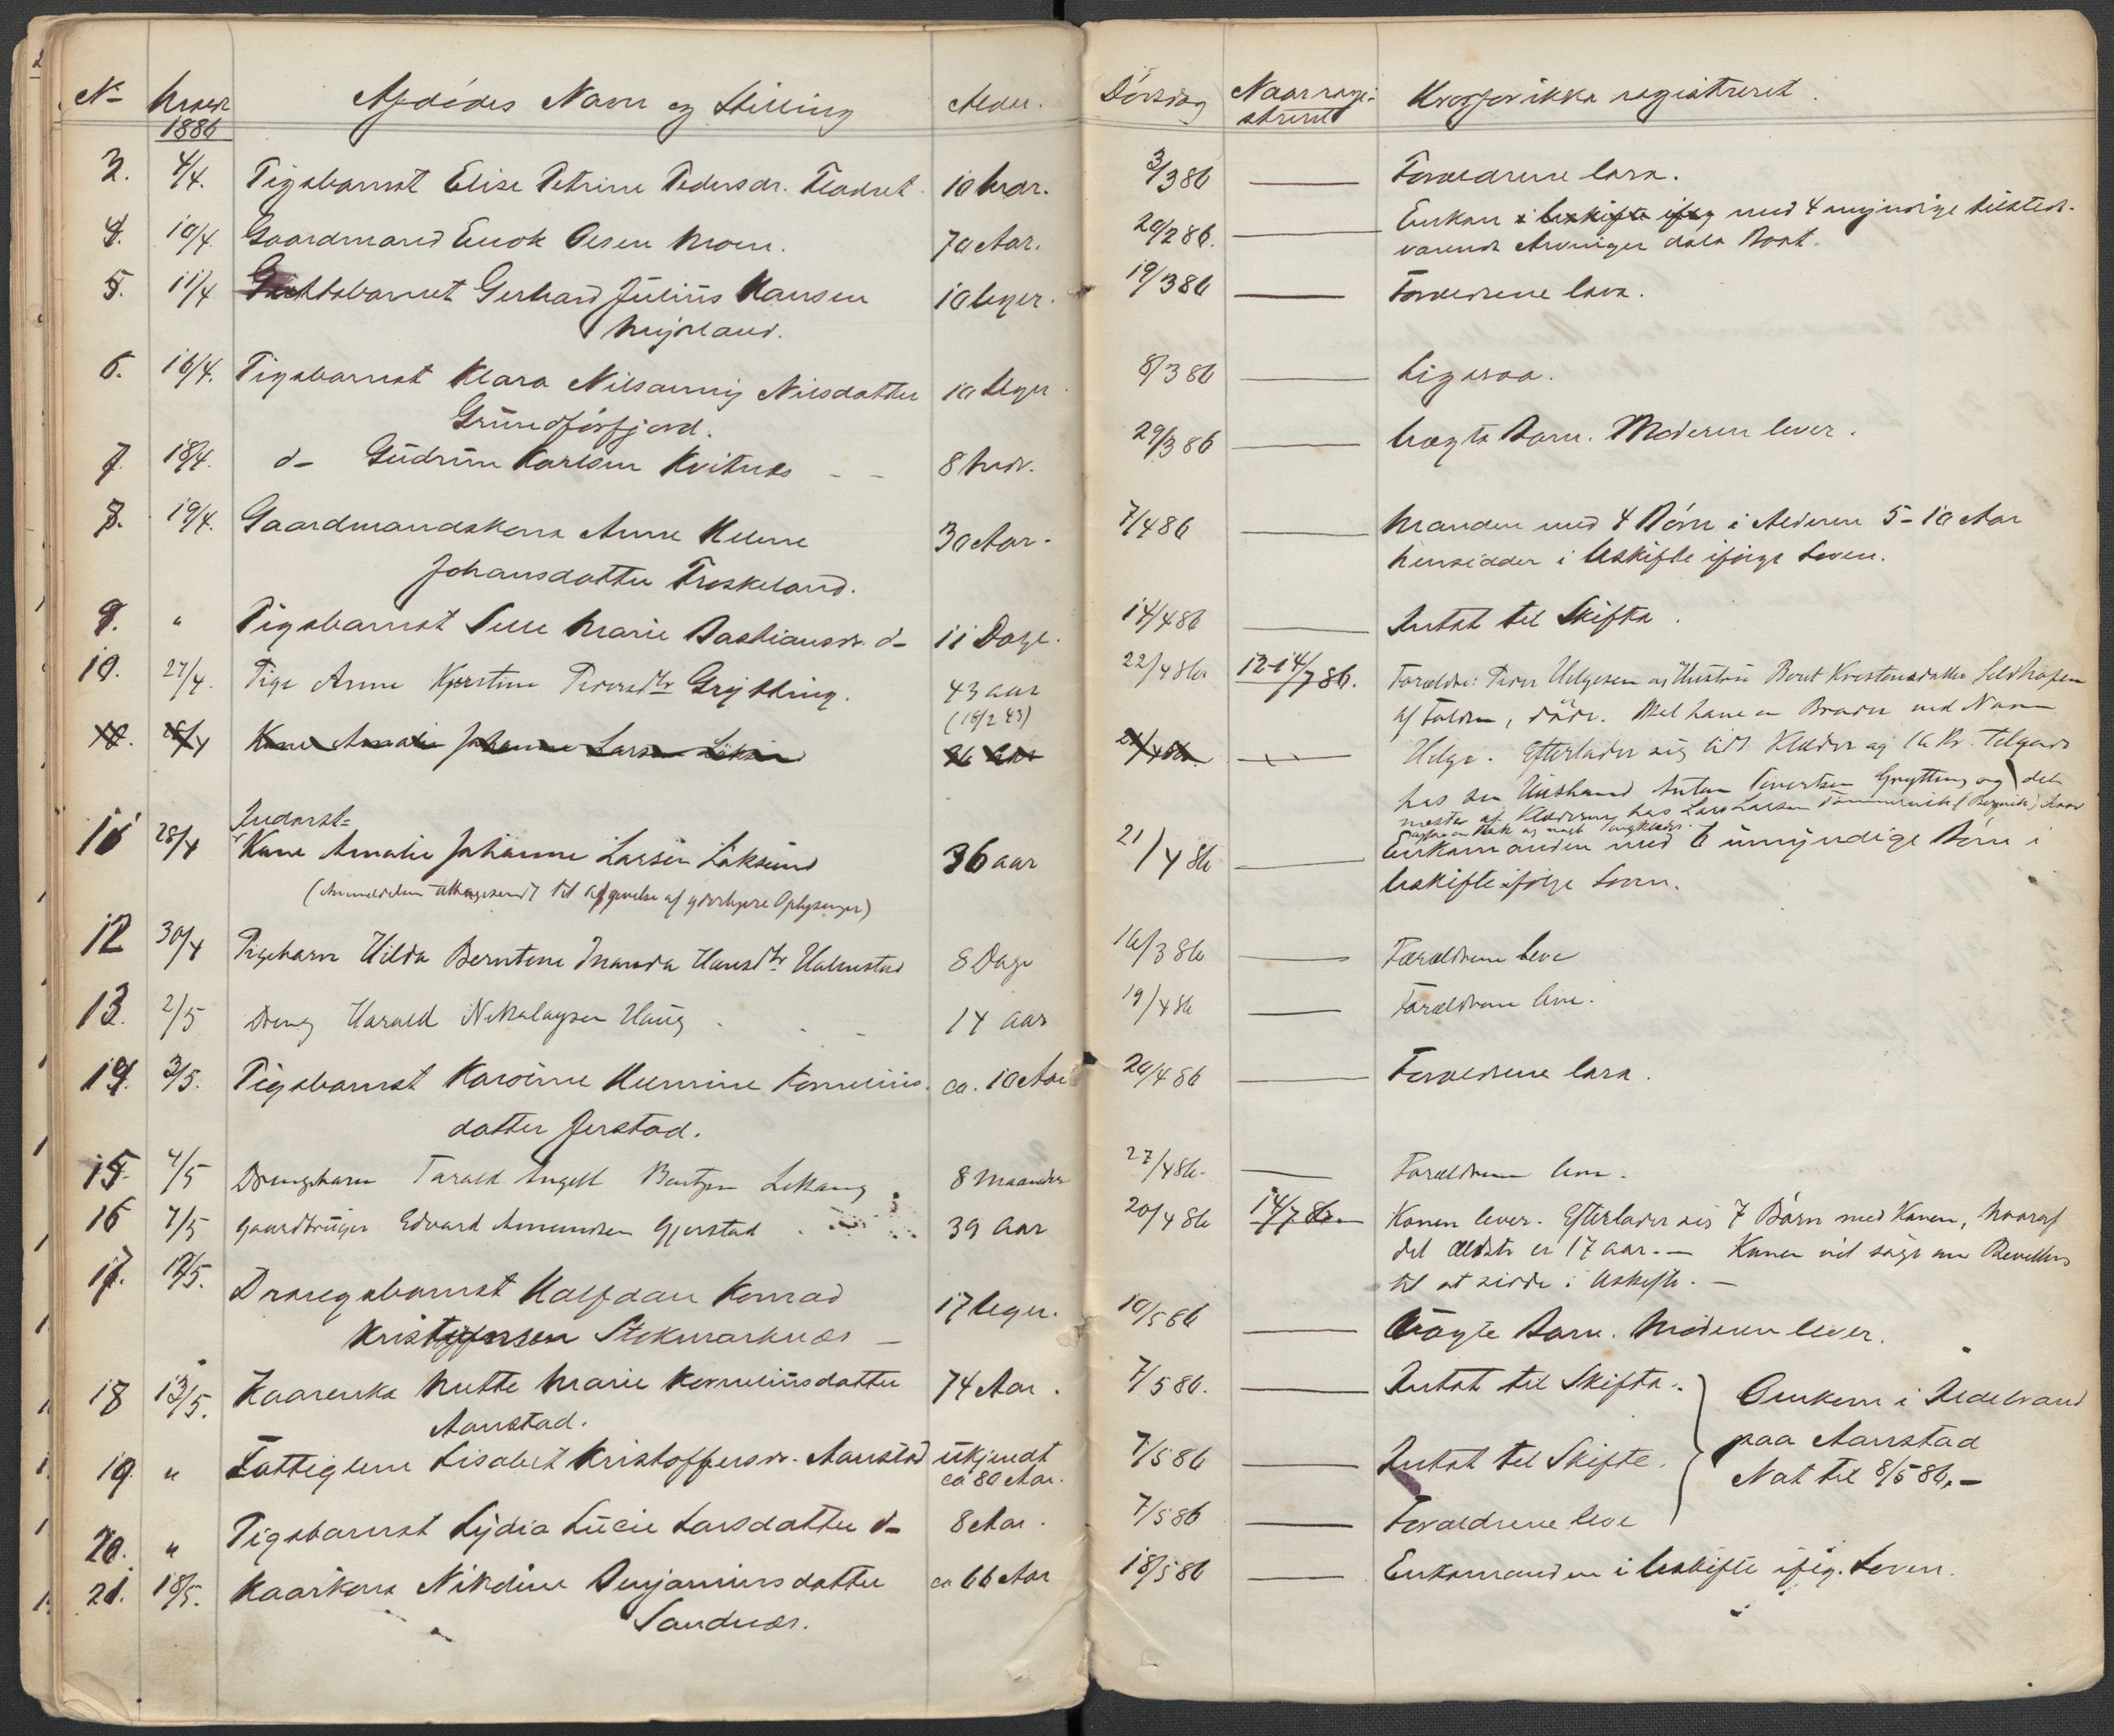 No Naar Afdödes Navn og Stilling Alder. Dödsdag Naar regi- Hvorfor ikke registreret.
1886 streret
3. 4/4. Pigebarnet Elise Petrine Pedersdr. 10 Mdr. 3/3 86 Forældrene leve.
4. 10/4 Gaardmand Enok Olsen Moen. 70 Aar. 20/2 86. Enken med 4 myndige tilstede-
værende Arvinger dele Boet.
5. 11/4 Gerhard Julius Hansen 10 Uger. 19/3 86 Forældrene leve.
Myrland.
6. 16/4. Pigebarnet Klara Nilsdatter 10 Uger 8/3 86 Ligesaa.
Grundförfjord.
7. 18/4. do Gudrun Karlsen Kvitnes 8 Mdr. 29/3 86 Uægte Barn. Moderen lever.
8. 19/4. Gaardmandskone Anne Helene 30 Aar. 7/4 86 Manden med 4 Börn i Alderen 5-10 Aar
Johansdatter Froskeland. hensidder i Uskifte ifölge Loven.
9. " Pigebarnet Marie Bastiansdr. do 11 Dage. 14/4 86 Intet til Skifte.
10. 27/4. Pige Anne Kjerstine Grytting. 43 aar 22/4 86 12-14/7 86. Forældre: Peder Helgesen og Hustru Beret
(18/2 43) af Folden, döde. Skal have en Broder ved Navn
Kone Amalie Johanne Larsen Helge. Efterlader sig lidt Klæder og 16 Kr. Tilgode
hos sin Husbond Anton Grytting og det
meste af Klæderne hos Lars Larsen
Inderst-
11 28/4 Kone Amalie Johanne Larsen Löksund 36 aar 21/4 86 Enkemanden med 6 umyndige Börn i
(Anmeldelsen tilbagesendt til afgivelse af yderligere Oplysninger) Uskifte ifölge Loven.
12 30/4 Pigebarn Hilda Berntine Hansdtr Holmstad 8 Dage 16/3 86 Forældrene leve
13. 2/5 Dreng Harald Nikolaysen Haug 14 aar 19/4 86 Forældrene leve.
14. 3/5. Pigebarnet Karoline Hermine Kornelius- ca. 10 Aar 20/4 86 Forældrene leve.
datter Jerstad.
15. 4/5 Drengebarn Angell Bentzen Lekang 8 Maaneder 27/4 86. Forældrene leve.
16 7/5 Gaardbruger Edvard Amundsen Gjerstad 39 Aar 20/4 86 14/7 86. Konen lever. Efterlader sig 7 Börn med Konen, hvoraf
det ældste er 17 aar. — Konen vil söge om Bevilling
til at sidde i Uskifte. —
17. 12/5. Drengebarnet Halfdan Konrad 17 Uger. 10/5 86 Uægte Barn. Moderen lever.
Kristoffersen Stokmarknæs —
18 13/5. Kaarenke Mette Marie Korneliusdatter 74 Aar. 7/5 86. Intet til Skifte. Omkom i Ildebrand
Aanstad.
19. " Fattiglem Lisabet Kristoffersdr. Aanstad ukjendt 7/5 86 Intet til Skifte. paa Aanstad
ca 80 Aar. Nat til 8/5 86. —
20. " Pigebarnet Lydia Lucie Larsdatter do 8 Aar. 7/5 86 Forældrene leve
21. 18/5. Kaarkone Nikoline Benjaminsdatter ca 66 Aar 18/5 86 Enkemanden i Uskifte ifölg. Loven.
Sandnes.